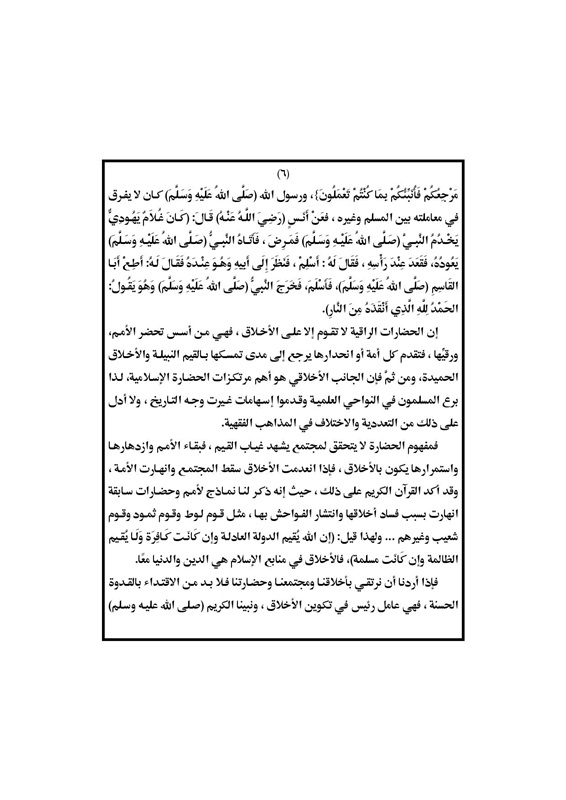 (٦)
مَرْجِعُكُمْ فَأُنَبِّئُكُمْ بِمَا كُنْتُمْ تَعْمَلُونَ}، ورسول الله (صَلَّى اللهُ عَلَيْهِ وَسَلَّمَ) كان لا يفرق
في معاملته بين المسلم وغيره ، فعَنْ أَنَسٍ (رَضِيَ اللَّهُ عَنْهُ) قَالَ: (كَانَ غُلاَمٌ يَهُودِيٌّ
يَخْدُمُ النَّبِيَّ (صَلَّى اللهُ عَلَيْهِ وَسَلَّمَ) فَمَرِضَ ، فَأَتَاهُ النَّبِيُّ (صَلَّى اللهُ عَلَيْهِ وَسَلَّمَ)
يَعُودُهُ، فَقَعَدَ عِنْدَ رَأْسِهِ ، فَقَالَ لَهُ : أَسْلِمْ ، فَنَظَرَ إِلَى أَبِيهِ وَهُوَ عِنْدَهُ فَقَالَ لَهُ: أَطِعْ أَبَا
القَاسِمِ (صَلَّى اللهُ عَلَيْهِ وَسَلَّمَ)، فَأَسْلَمَ، فَخَرَجَ النَّبِيُّ (صَلَّى اللهُ عَلَيْهِ وَسَلَّمَ) وَهُوَ يَقُولُ:
الحَمْدُ لِلَّهِ الَّذِي أَنْقَذَهُ مِنَ النَّارِ).
إن الحضارات الراقية لا تقوم إلا على الأخلاق ، فهي من أسس تحضر الأمم،
ورقيِّها ، فتقدم كل أمة أو انحدارها يرجع إلى مدى تمسكها بالقيم النبيلة والأخلاق
الحميدة، ومن ثمَّ فإن الجانب الأخلاقي هو أهم مرتكزات الحضارة الإسلامية، لذا
برع المسلمون في النواحي العلمية وقدموا إسهامات غيرت وجه التاريخ ، ولا أدل
على ذلك من التعددية والاختلاف في المذاهب الفقهية.
فمفهوم الحضارة لا يتحقق لمجتمع يشهد غياب القيم ، فبقاء الأمم وازدهارها
واستمرارها يكون بالأخلاق ، فإذا انعدمت الأخلاق سقط المجتمع وانهارت الأمة ،
وقد أكد القرآن الكريم على ذلك ، حيث إنه ذكر لنا نماذج لأمم وحضارات سابقة
انهارت بسبب فساد أخلاقها وانتشار الفواحش بها ، مثل قوم لوط وقوم ثمود وقوم
شعيب وغيرهم ... ولهذا قيل: (إن الله يُقيم الدولة العادلة وإن كَانَت كَافِرَة وَلَا يُقيم
الظالمة وإن كَانَت مسلمة)، فالأخلاق في منابع الإسلام هي الدين والدنيا معًا.
فإذا أردنا أن نرتقي بأخلاقنا ومجتمعنا وحضارتنا فلا بد من الاقتداء بالقدوة
الحسنة ، فهي عامل رئيس في تكوين الأخلاق ، ونبينا الكريم (صلى الله عليه وسلم)